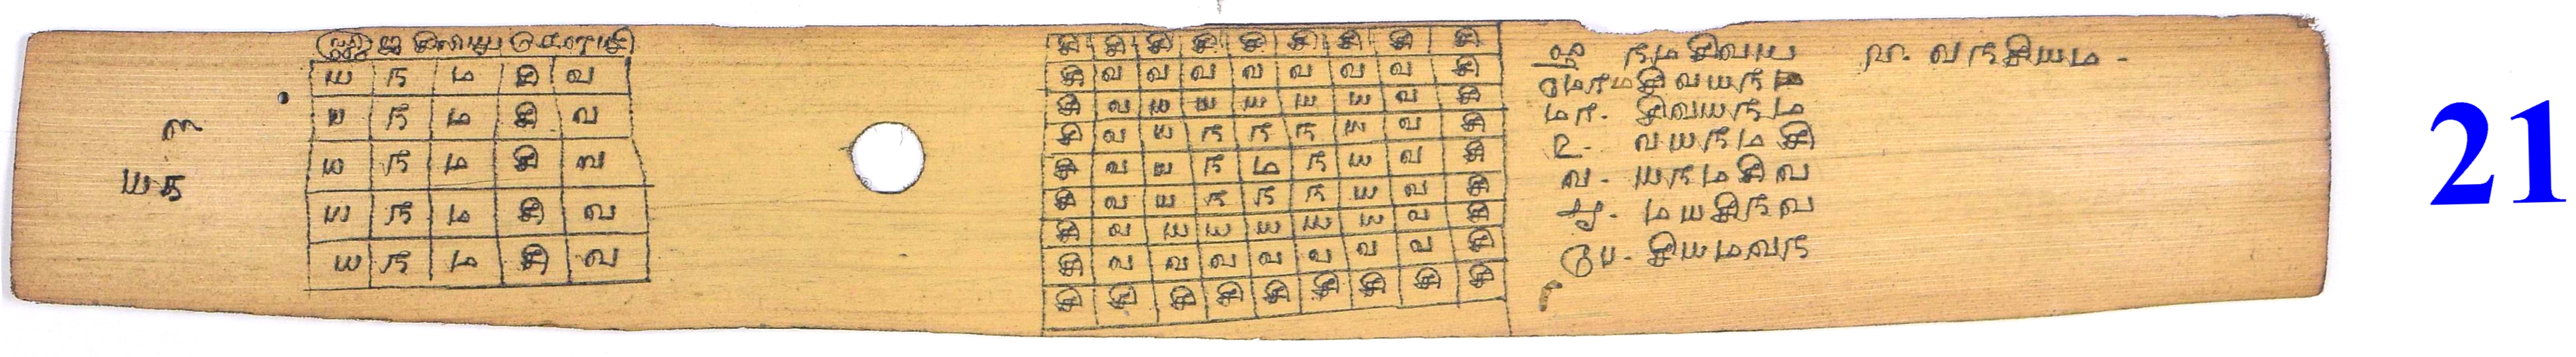 ய ந
ய ந ம சி வ
ய ந ம சி வ
ய ந ம சி வ
ய ந ம சி வ
ய ந ம சி வ
சி சி சி சி சி சி சி சி சி
சி வ வ வ வ வ வ வ சி
சி வ ய ய ய ய ய வ சி
சி வ ய ந ந ந ய வ சி
சி வ ய ந ம ந ய வ சி
சி வ ய ந ந ந ய வ சி
சி வ ய ய ய ய ய வ சி
சி வ வ வ வ வ வ வ சி
சி சி சி சி சி சி சி சி சி
நமசிவய வநசியம -
சிவயநம
உ - வயநமசி
வ - யநமசிவ
மயசிநவ
சியமவந
21